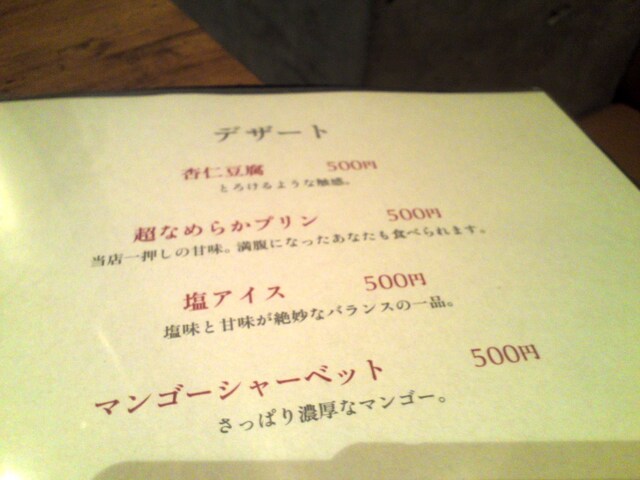 デザート
杏仁豆腐 500円
とろけるような触感。
超なめらかプリン 500円
当店一押しの甘味。満腹になったあなたも食べられます。
塩アイス 500円
塩味と甘味が絶妙なバランスの一品。
マンゴーシャーベット 500円
さっぱり濃厚なマンゴー。